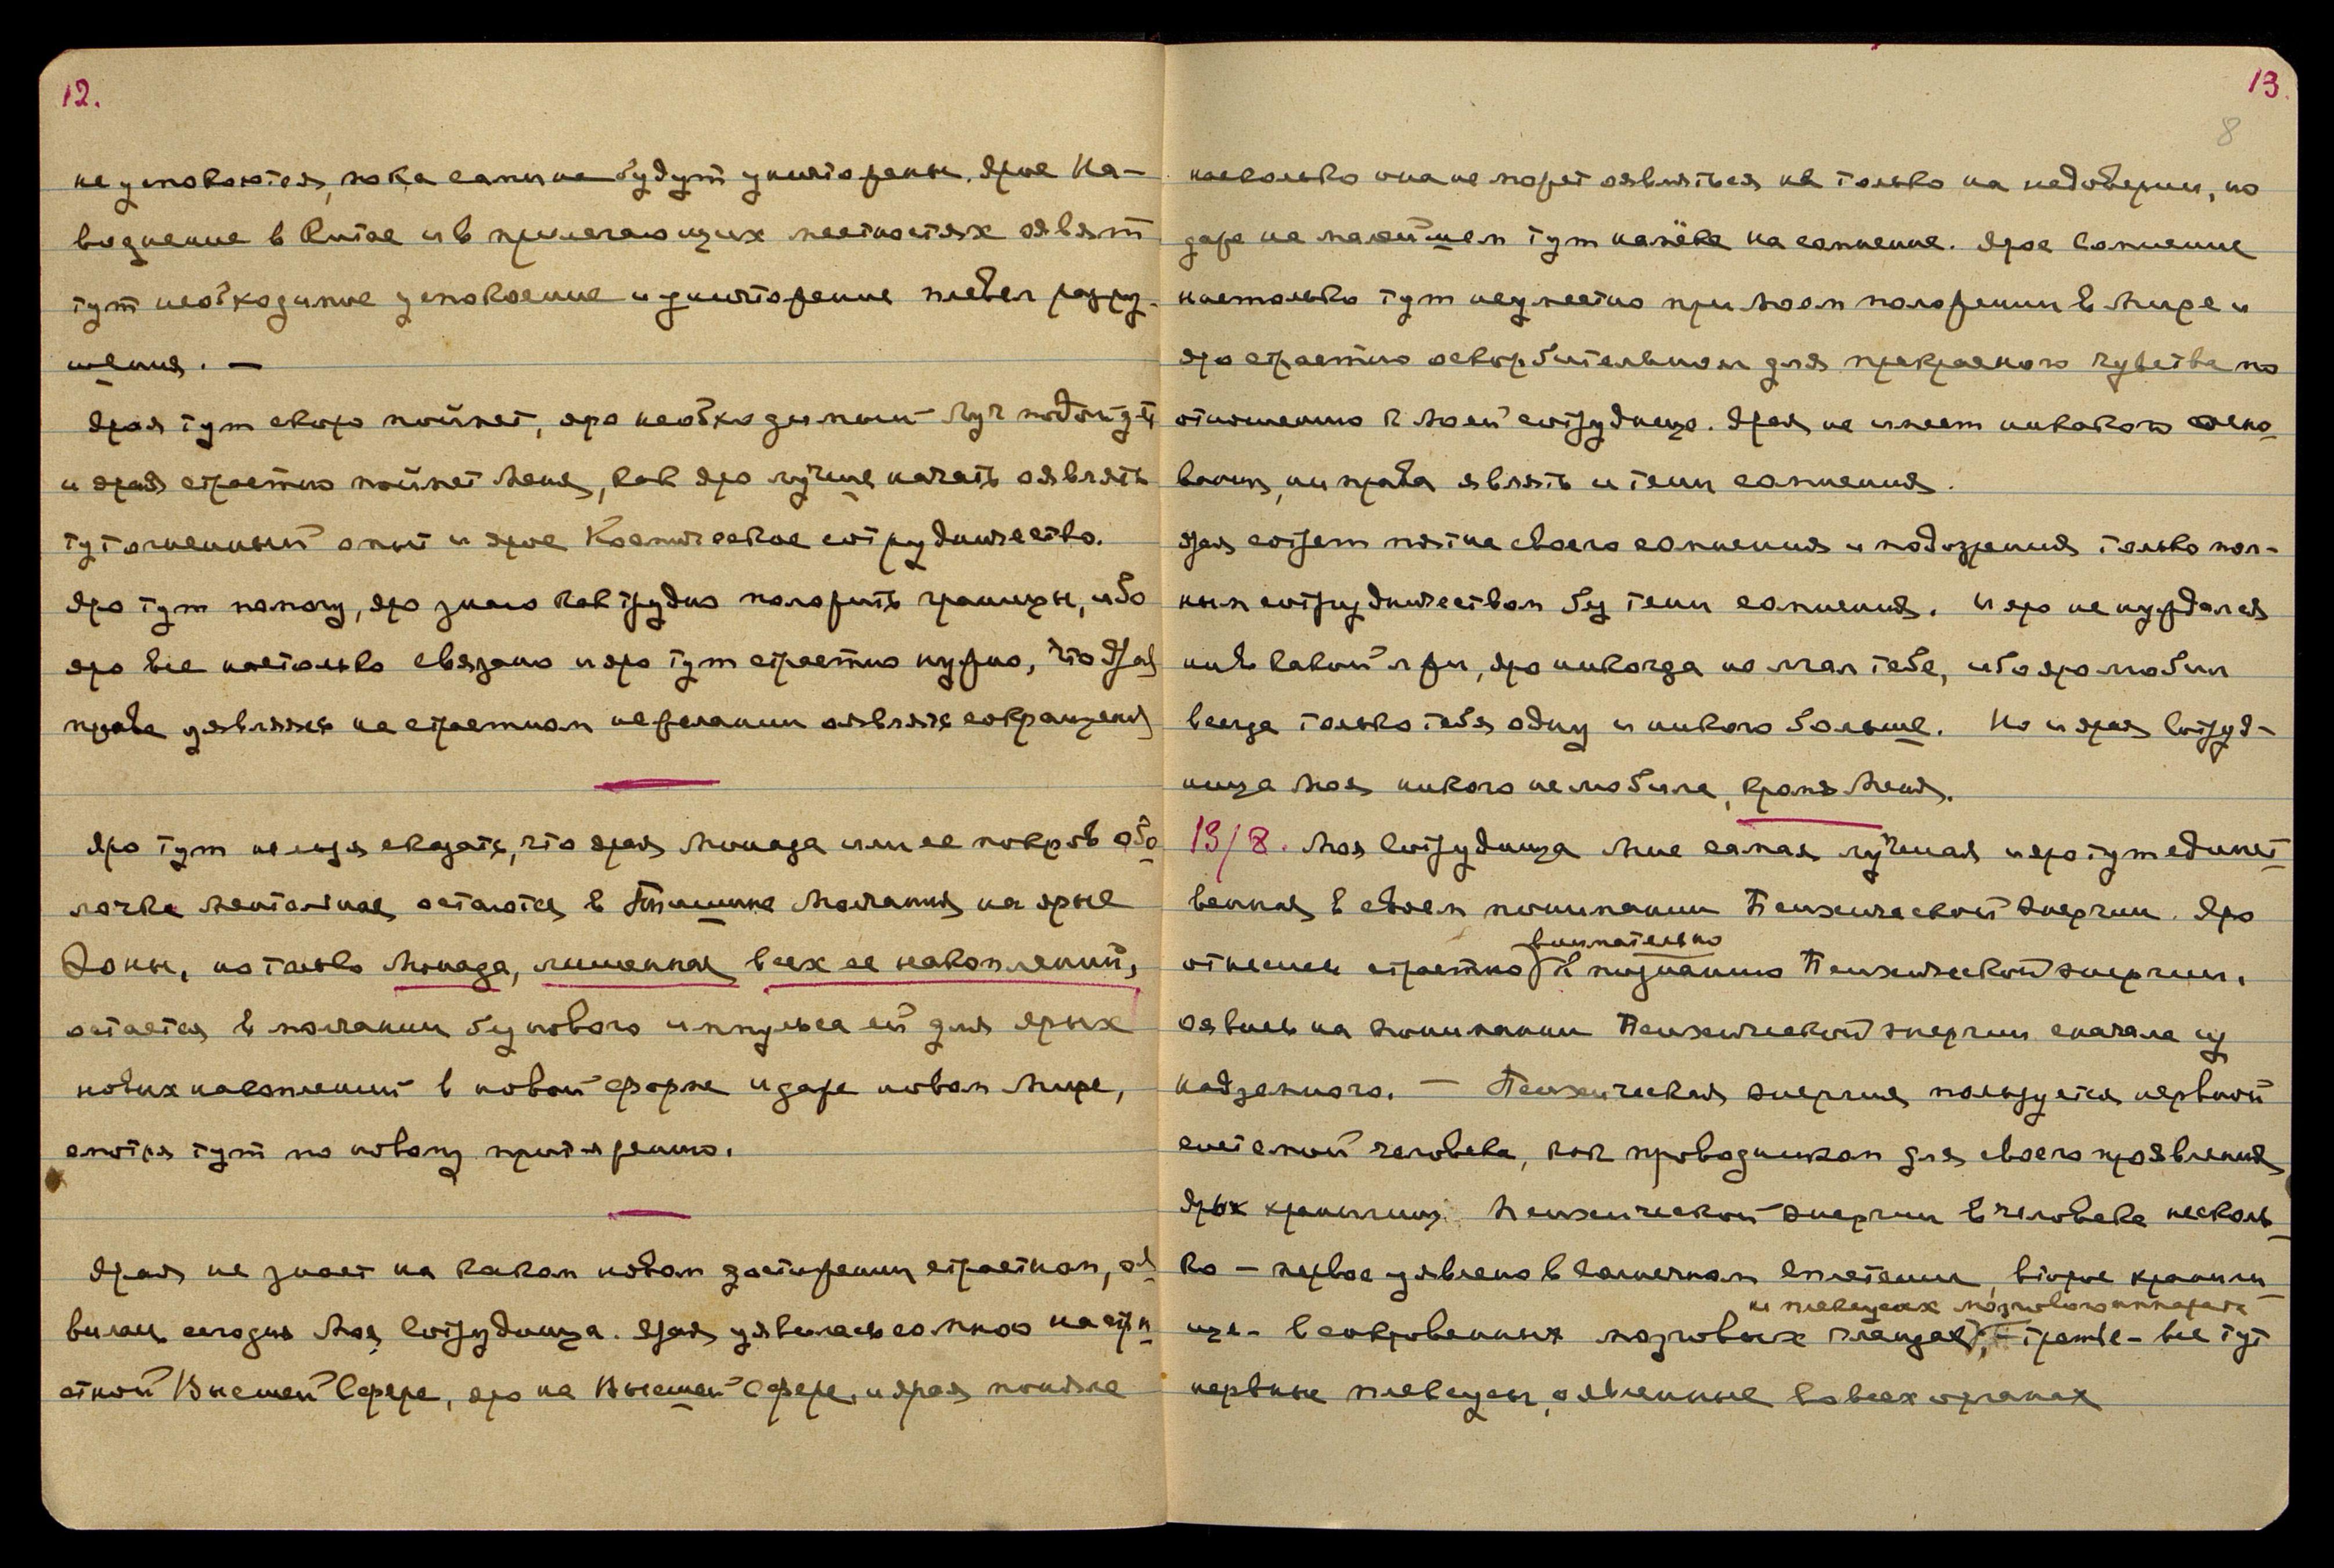 12.
не успокоются, пока сами не будут уничтожены. Ярое На-
воднение в Китае и в прилегающих местностях оявят
тут необходимое успокоение и уничтожение плевел разру-
шения. —
Ярая тут скоро поймет, яро необходимый Луч подойдет
и ярая страстно поймет Меня, как яро лучше начать оявлять
тут огненный опыт и ярое Космическое сотрудничество.
Яро тут помогу, яро знаю как трудно положить границы, ибо
яро все настолько связано и яро тут страстно нужно, что Ярая
права уявляясь на страстном нежелании оявлять сокращения
Яро тут нельзя сказать, что ярая Монада или ее покров обо
лочка ментальная остаются в Тишине Молчания на ярые
Эоны, но только Монада, лишенная всех ее накоплений,
остается в молчании без нового импульса ей для ярых
новых накоплений в новой форме и даже новом Мире,
смотря тут по новому притяжению.
Ярая не знает на каком новом достижении страстном, оя
вилась сегодня Моя Сотрудница. Ярая уявилась со мною на стра
стной Высшей Сфере, яро на Высшей Сфере, и ярая поняла
13.
8
насколько она не может оявляться не только на недоверии, но
даже на малейшем тут намёке на сомнение. Ярое Сомнение
настолько тут неуместно при Моем положении в Мире и
яро страстно оскорбительном для прекрасного чувства по
отношению к Моей сотруднице. Ярая не имеет никакого осно
вания, ни права являть и тени сомнения.
Ярая сотрет пятна своего сомнения и подозрения только пол-
ным сотрудничеством без тени сомнения. И яро не нуждался
ни в какой лжи, яро никогда не лгал тебе, ибо яро любил
всегда только тебя одну и никого больше. Но и ярая Сотруд-
ница Моя никого не любила, кроме Меня.
13/8. Моя Сотрудница Мне самая лучшая и яро тут единст
венная в своем понимании Психической Энергии. Яро
внимательно
отнесись страстно к познанию Психической энергии,
оявись на понимании Психической энергии сначала из
надземного. — Психическая энергия пользуется нервной
системой человека, как проводником для своего проявления
Ярых хранилищ Психической энергии в человеке несколь
ко — первое уявлено в Солнечном Сплетении, второе храни­ли
и плексусах мозгового аппарата
ще — в сокровенных мозговых гландах, третье — все тут
нервные плексусы, оявленные во всех органах